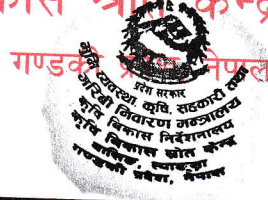 गण्डकी प्रदेश, नेपाल
प्रदेश सरकार
भूमि व्यवस्था, कृषि, सहकारी तथा
गरिबी निवारण मन्त्रालय
कृषि विकास निर्देशनालय
कृषि विकास स्रोत केन्द्र
गण्डकी प्रदेश, नेपाल